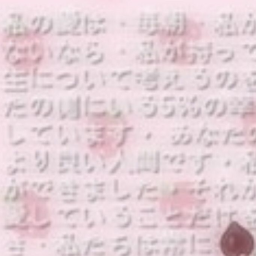 私の愛は・毎朝・私が
ないなら・私が持って
生について考えるの
たの側にいる
しています・あなた
より良い人間です・
ができました・それ
愛していることだけ
ま・私たちは